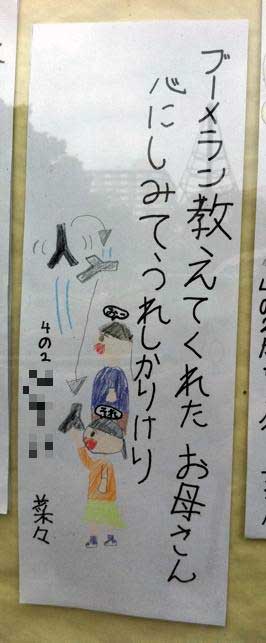 ブーメラン教えてくれたお母さん
心にしみてうれしかりけり
4の2
菜々